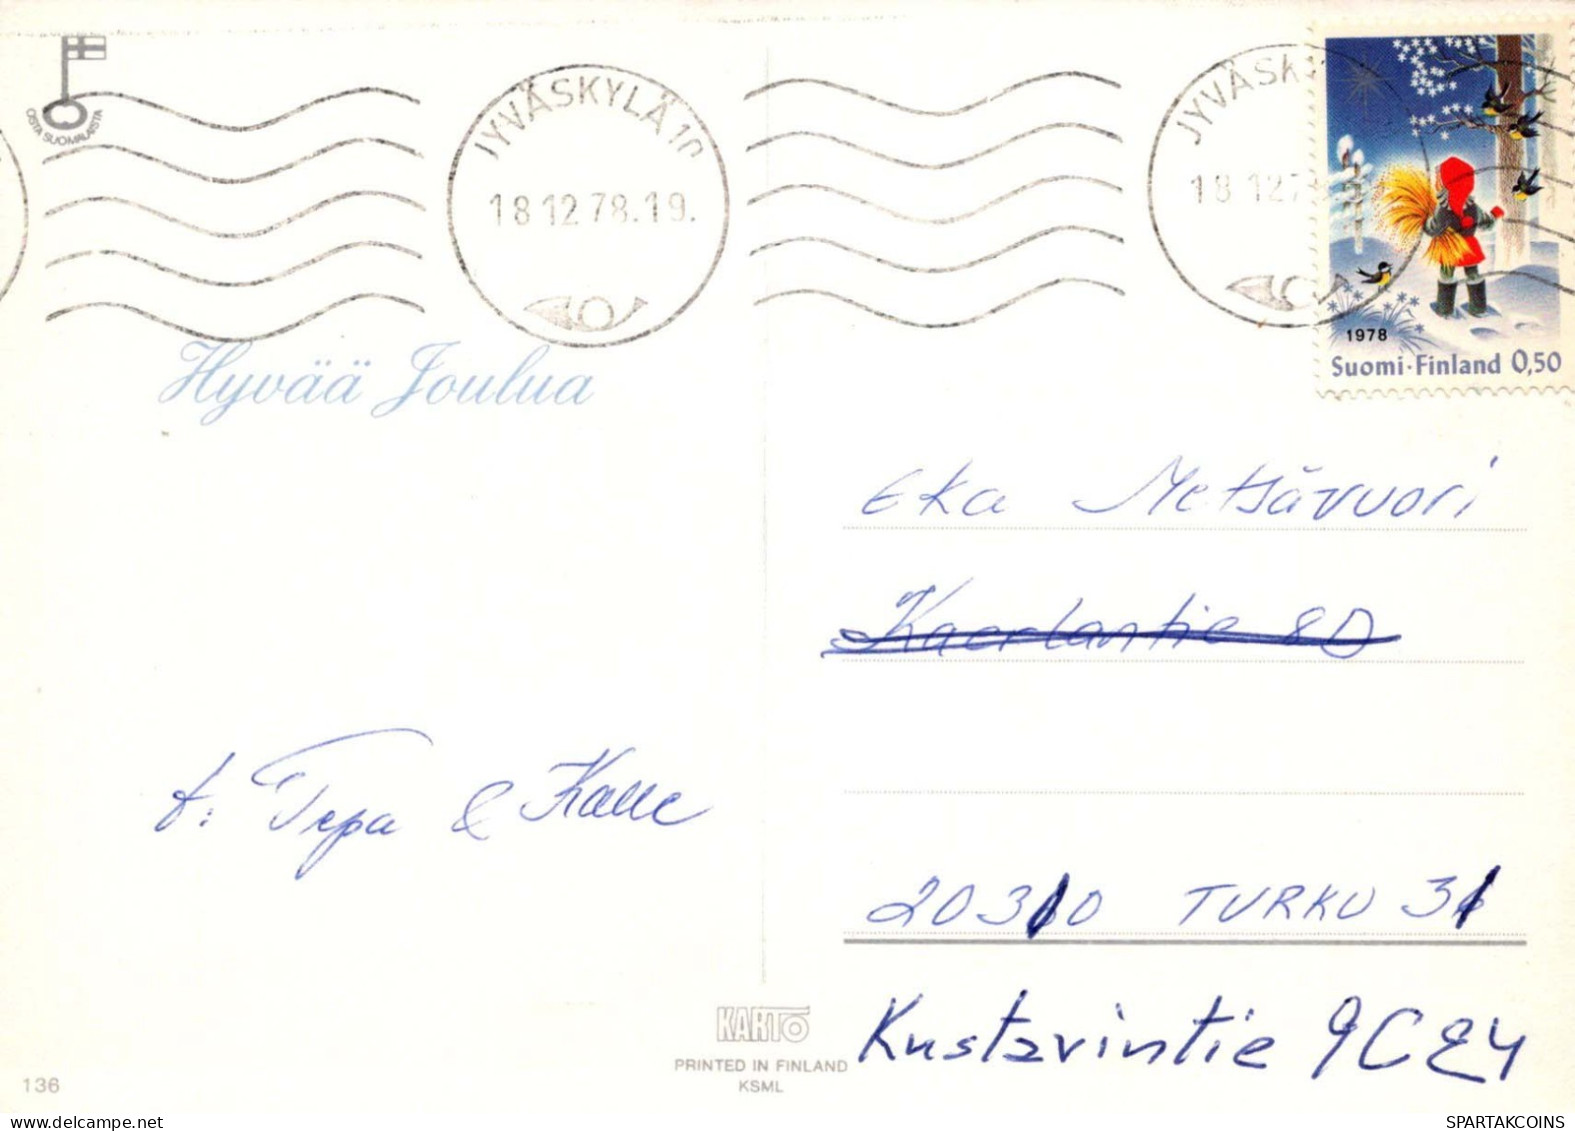 OSTA SUOMALAISTA
JYVÄSKYLÄ 10
18.12.78.19.
JYVÄSK
18.12.7
1978
Suomi·Finland 0,50
Hyvää Joulua
Eka Metsävuori
t: Tepa & Kalle
20310 TURKU 31
Kustavintie 9C24
KARTO
PRINTED IN FINLAND
KSML
136
SPARTAKCOINS